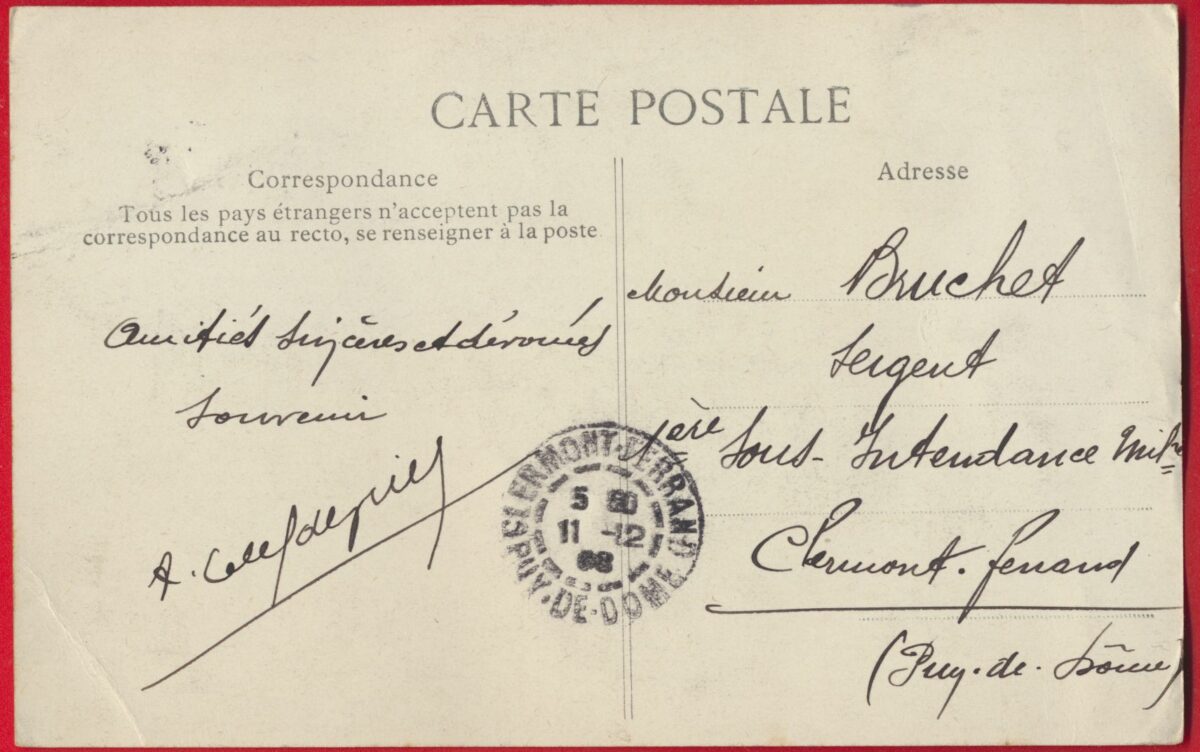 CARTE POSTALE
Correspondance
Tous les pays étrangers n'acceptent pas la
correspondance au recto, se renseigner à la poste
Amitiés sinçères et dévoués
Souvenir
A.
Adresse
Monsieur Bruchet
Sergent
1ère Sous-Intendance Mil^re
Clermont-Ferrand
(Puy-de-Dôme)
CLERMONT-FERRAND
5
11 -12
08
PUY-DE-DOME